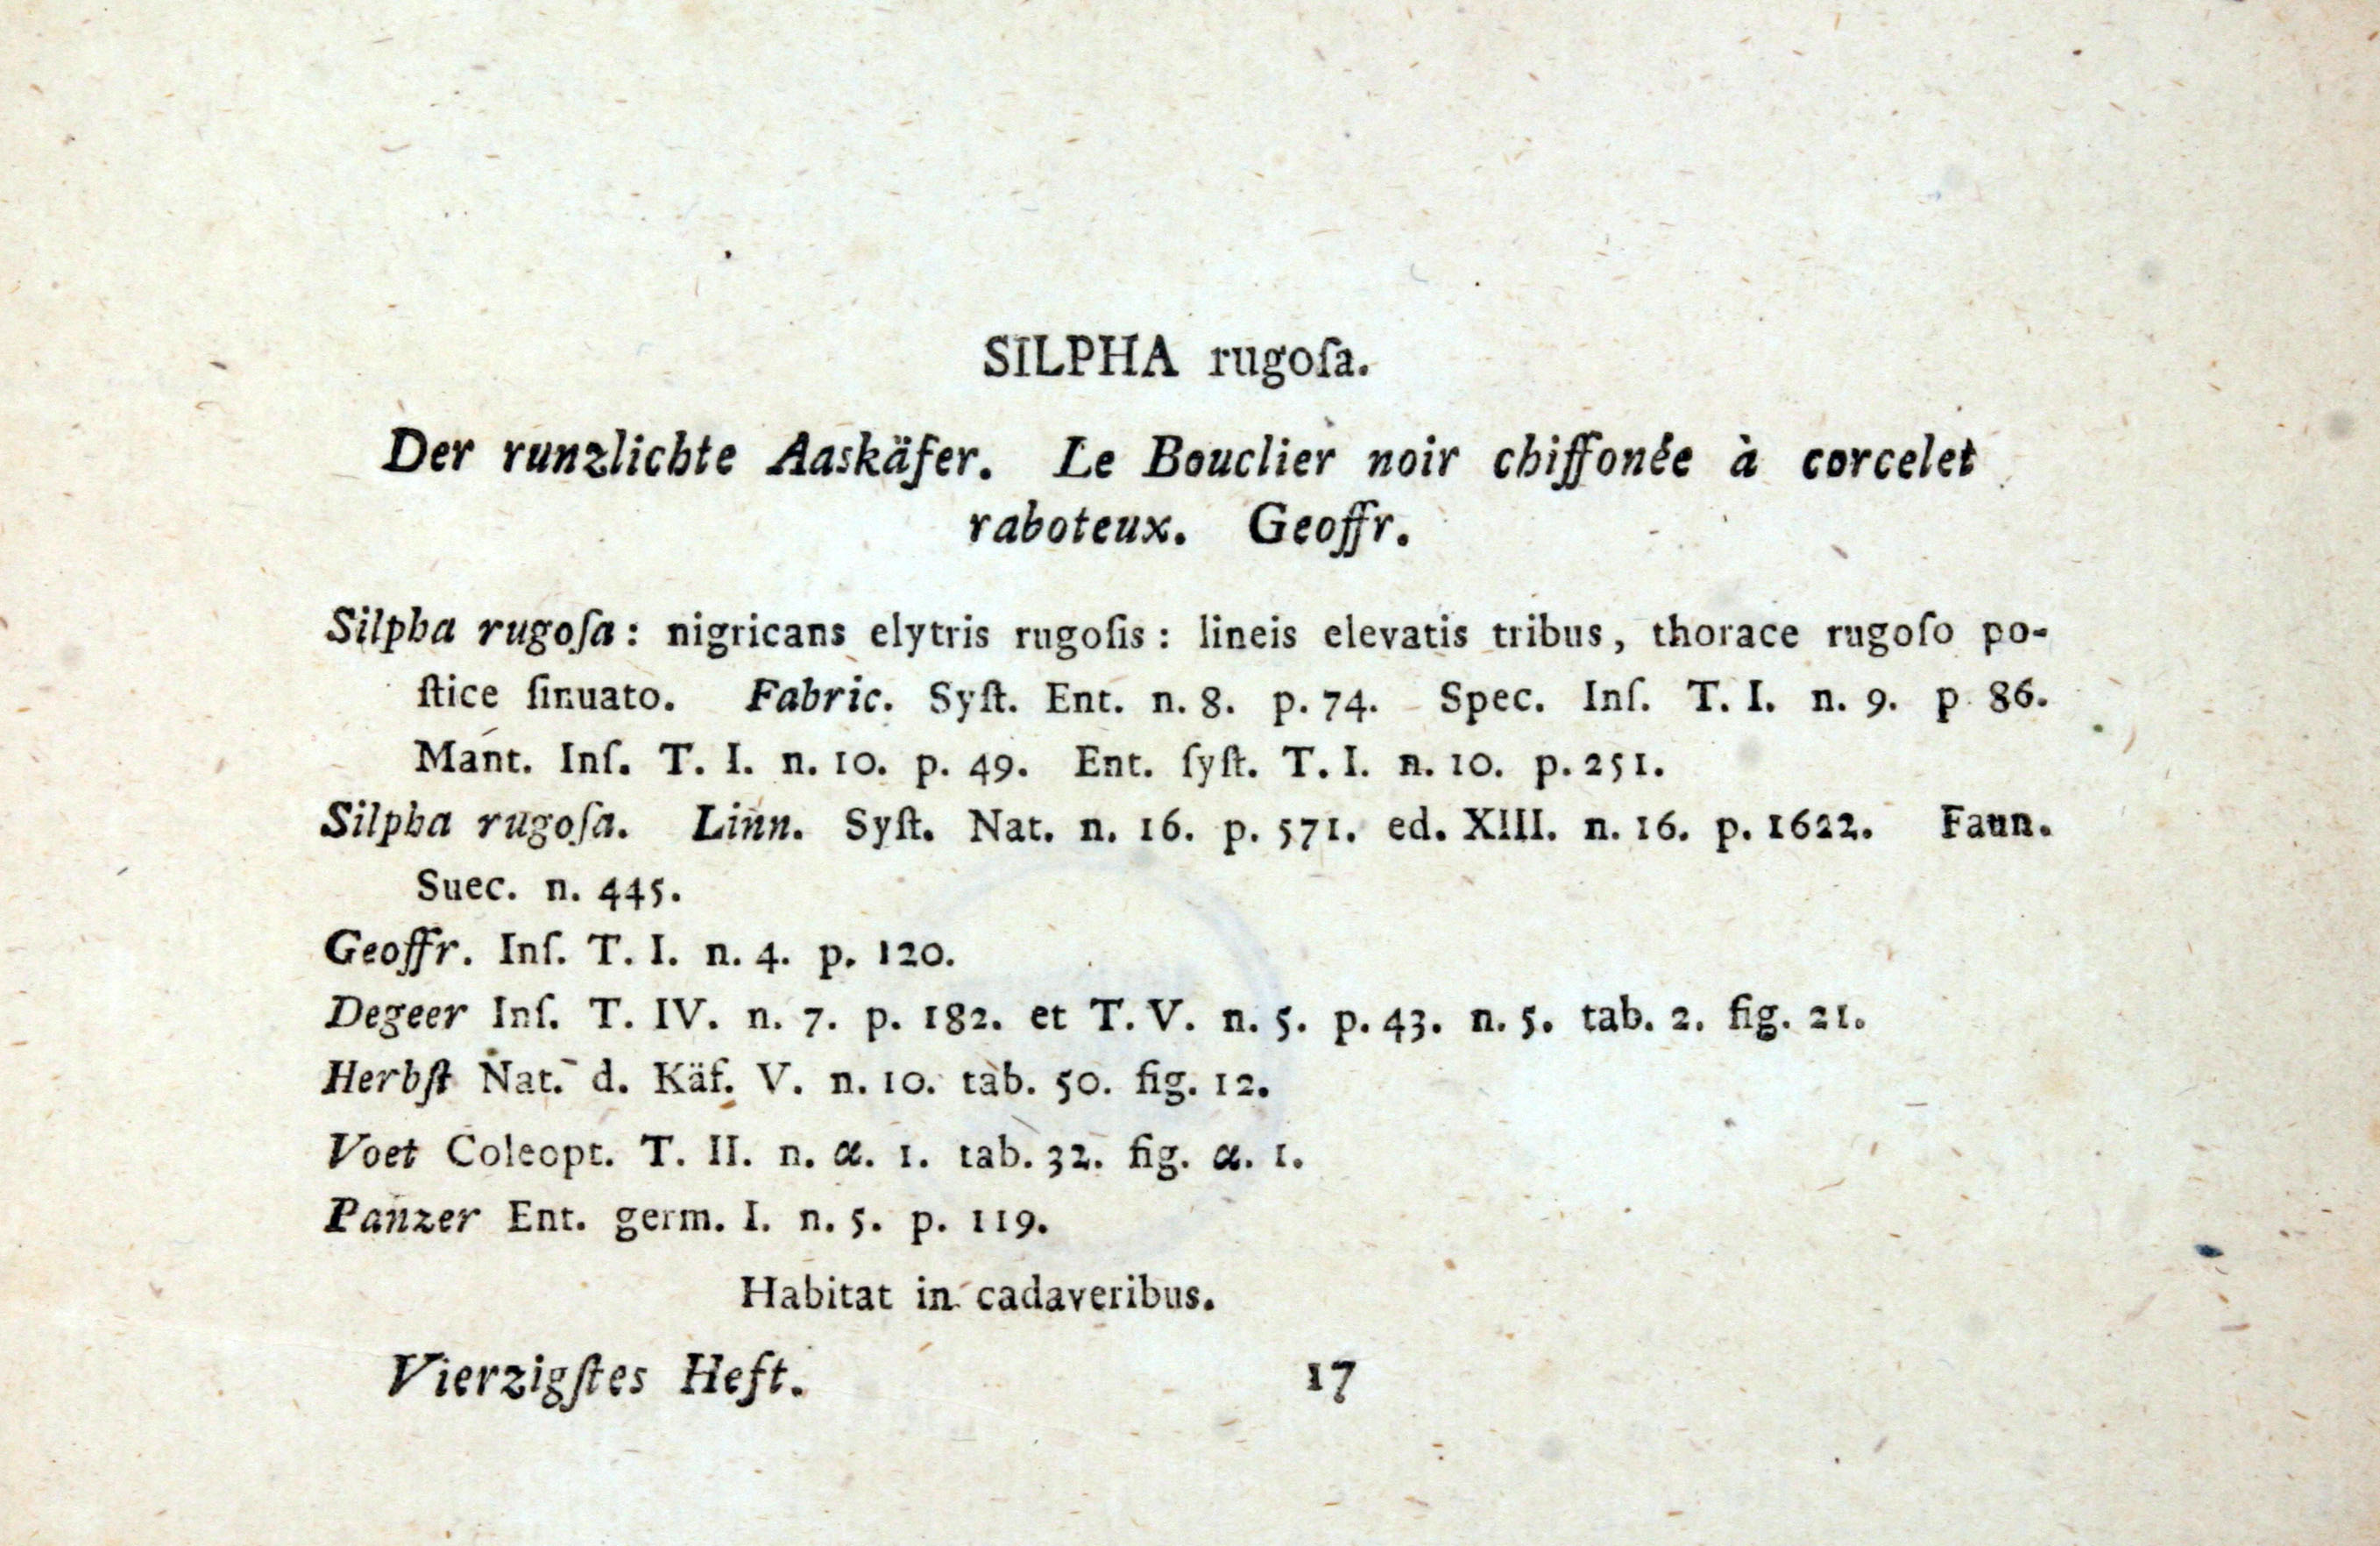 SILPHA rugoſa.
Der runzlichte Aaskäfer. Le Bouclier noir chiffonée à corcelet
raboteux. Geoffr.
Silpha rugoſa: nigricans elytris rugoſis: lineis elevatis tribus, thorace rugoſo po-
ſtice ſinuato. Fabric. Syſt. Ent. n. 8. p. 74. Spec. Inſ. T. I. n. 9. p 86.
Mant. Inſ. T. I. n. 10. p. 49. Ent. ſyſt. T. I. n. 10. p. 251.
Silpha rugoſa. Linn. Syſt. Nat. n. 16. p. 571. ed. XIII. n. 16. p. 1622. Faun.
Suec. n. 445.
Geoffr. Inſ. T. I. n. 4. p. 120.
Degeer Inſ. T. IV. n. 7. p. 182. et T. V. n. 5. p. 43. n. 5. tab. 2. fig. 21.
Herbſt Nat. d. Käf. V. n. 10. tab. 50. fig. 12.
Voet Coleopt. T. II. n. α. 1. tab. 32. fig. α. 1.
Panzer Ent. germ. I. n. 5. p. 119.
Habitat in cadaveribus.
Vierzigſtes Heft. 17